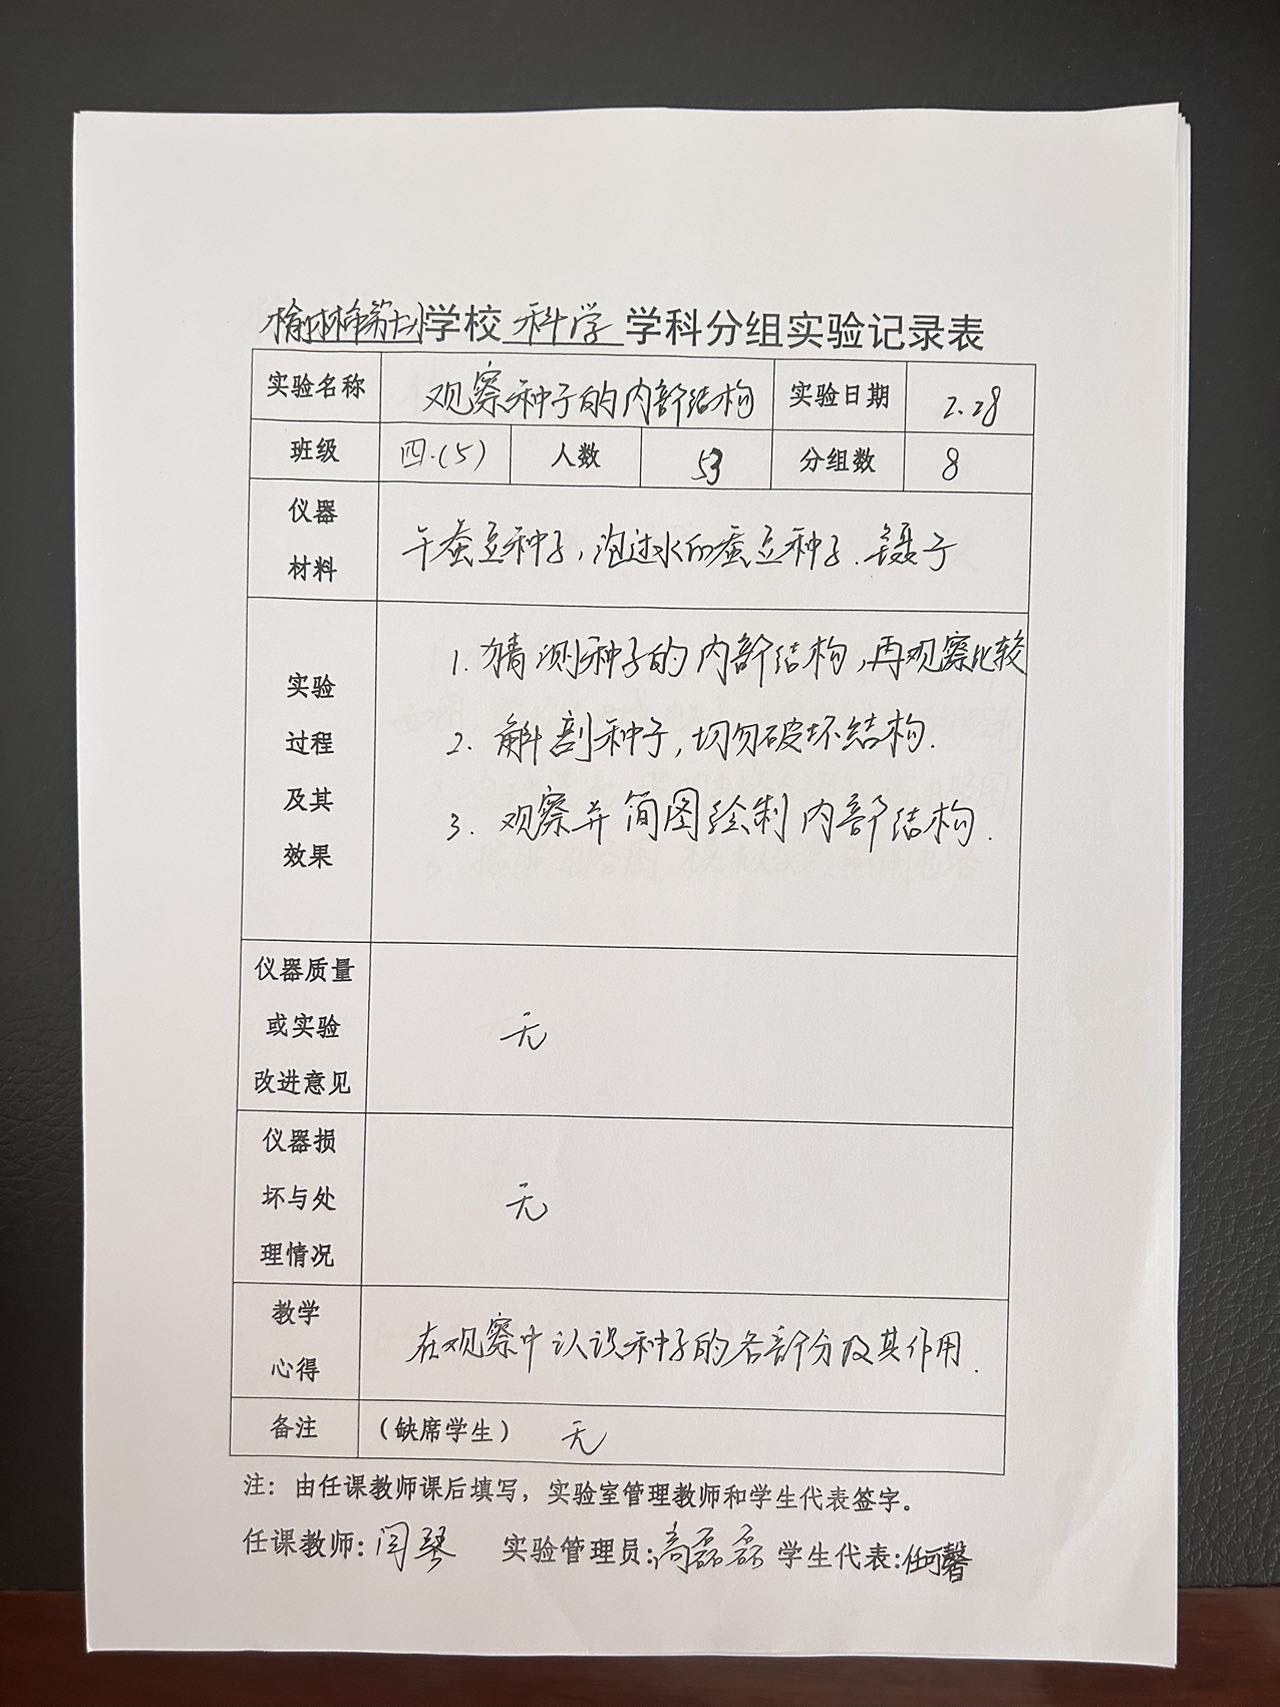 榆林市第十小学校 科学 学科分组实验记录表
实验名称 观察种子的内部结构 实验日期 2.28
班级 四.(5) 人数 53 分组数 8
仪器
材料
干蚕豆种子,泡过水的蚕豆种子.镊子
实验
过程
及其
效果
1. 猜测种子的内部结构,再观察比较
2. 解剖种子,切勿破坏结构.
3. 观察并简图绘制内部结构.
仪器质量
或实验
改进意见
无
仪器损
坏与处
理情况
无
教学
心得
在观察中认识种子的各部分及其作用.
备注 (缺席学生) 无
注：由任课教师课后填写，实验室管理教师和学生代表签字。
任课教师:闫琴 实验管理员:高磊磊 学生代表:任可馨